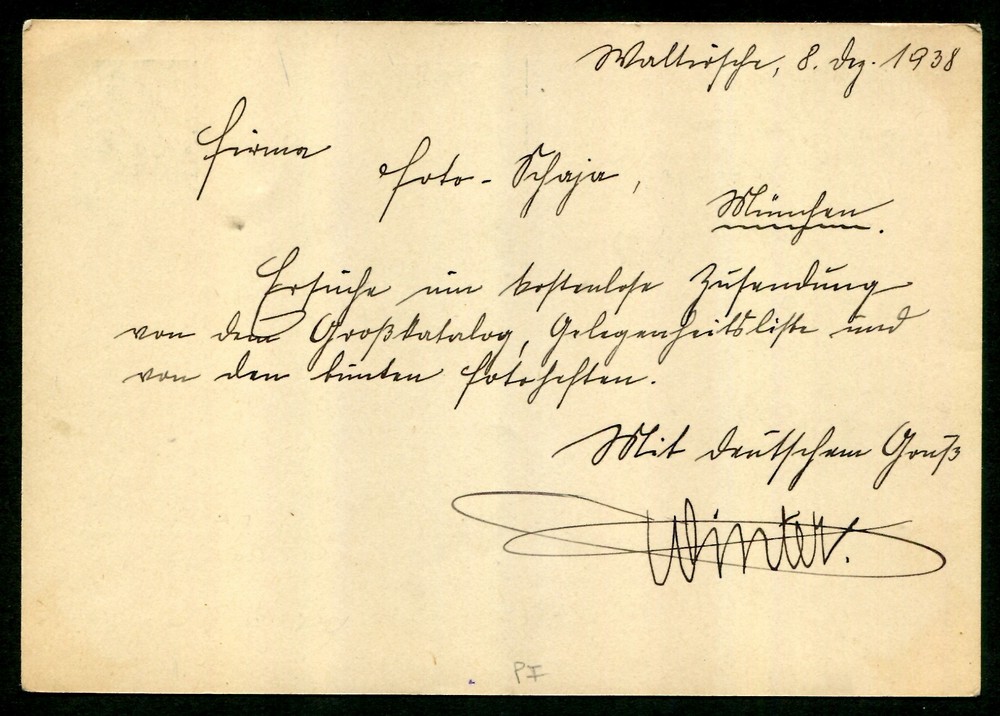 Waltirsche, 8. Dez. 1938
Firma
Foto-Schaja,
München.
Ersuche um kostenlose Zusendung
von dem Großkatalog, Gelegenheitsliste und
von den bunten Fotoheften.
Mit deutschem Gruß
Winter.
PI